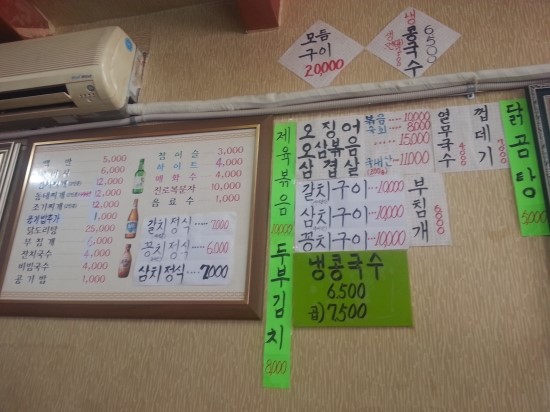 모듬
구이
20,000
냉
콩국수
6500
오징어
볶음 10,000
숙회 8,000
오삼볶음 15,000
삼겹살 국내산 11,000
열무국수
껍데기
닭곰탕
5,000
제육볶음
10,000
두부김치
8,000
갈치구이 10,000
삼치구이 10,000
꽁치구이 10,000
부침개
5000
냉콩국수
6.500
곱) 7,500
5,000
6,000
12,000
동태찌개 12,000
조기찌개 12,000
공기밥추가 1,000
닭도리탕 25,000
부침개 5,000
잔치국수 5,000
비빔국수 6,000
공기밥 1,000
참이슬 3,000
하이트 4,000
백화수 4,000
진로복분자 10,000
음료수 1,000
갈치정식 7000
꽁치정식 6000
삼치정식 7,000